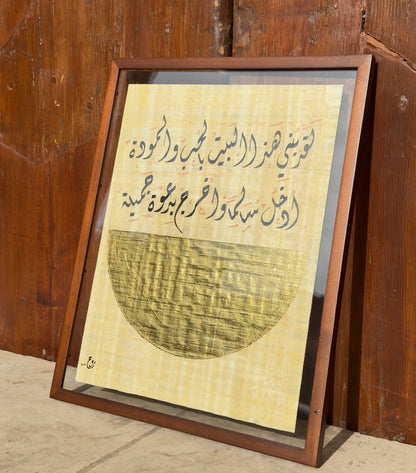 لقد بني هذا البيت بالحب والمودة
أدخل سالما واخرج بدعوة جميلة